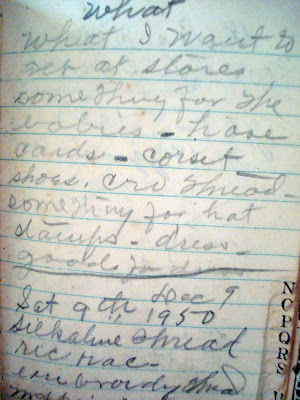 What
What I want to
get at stores
something for the
babies - have
cards - corset
shoes. cro thread -
something for hat
stamps - dress -
good for dress
Sat 9th Dec 9
1950
Silkaline thread
ric rac -
embroidy thread
NOPORS